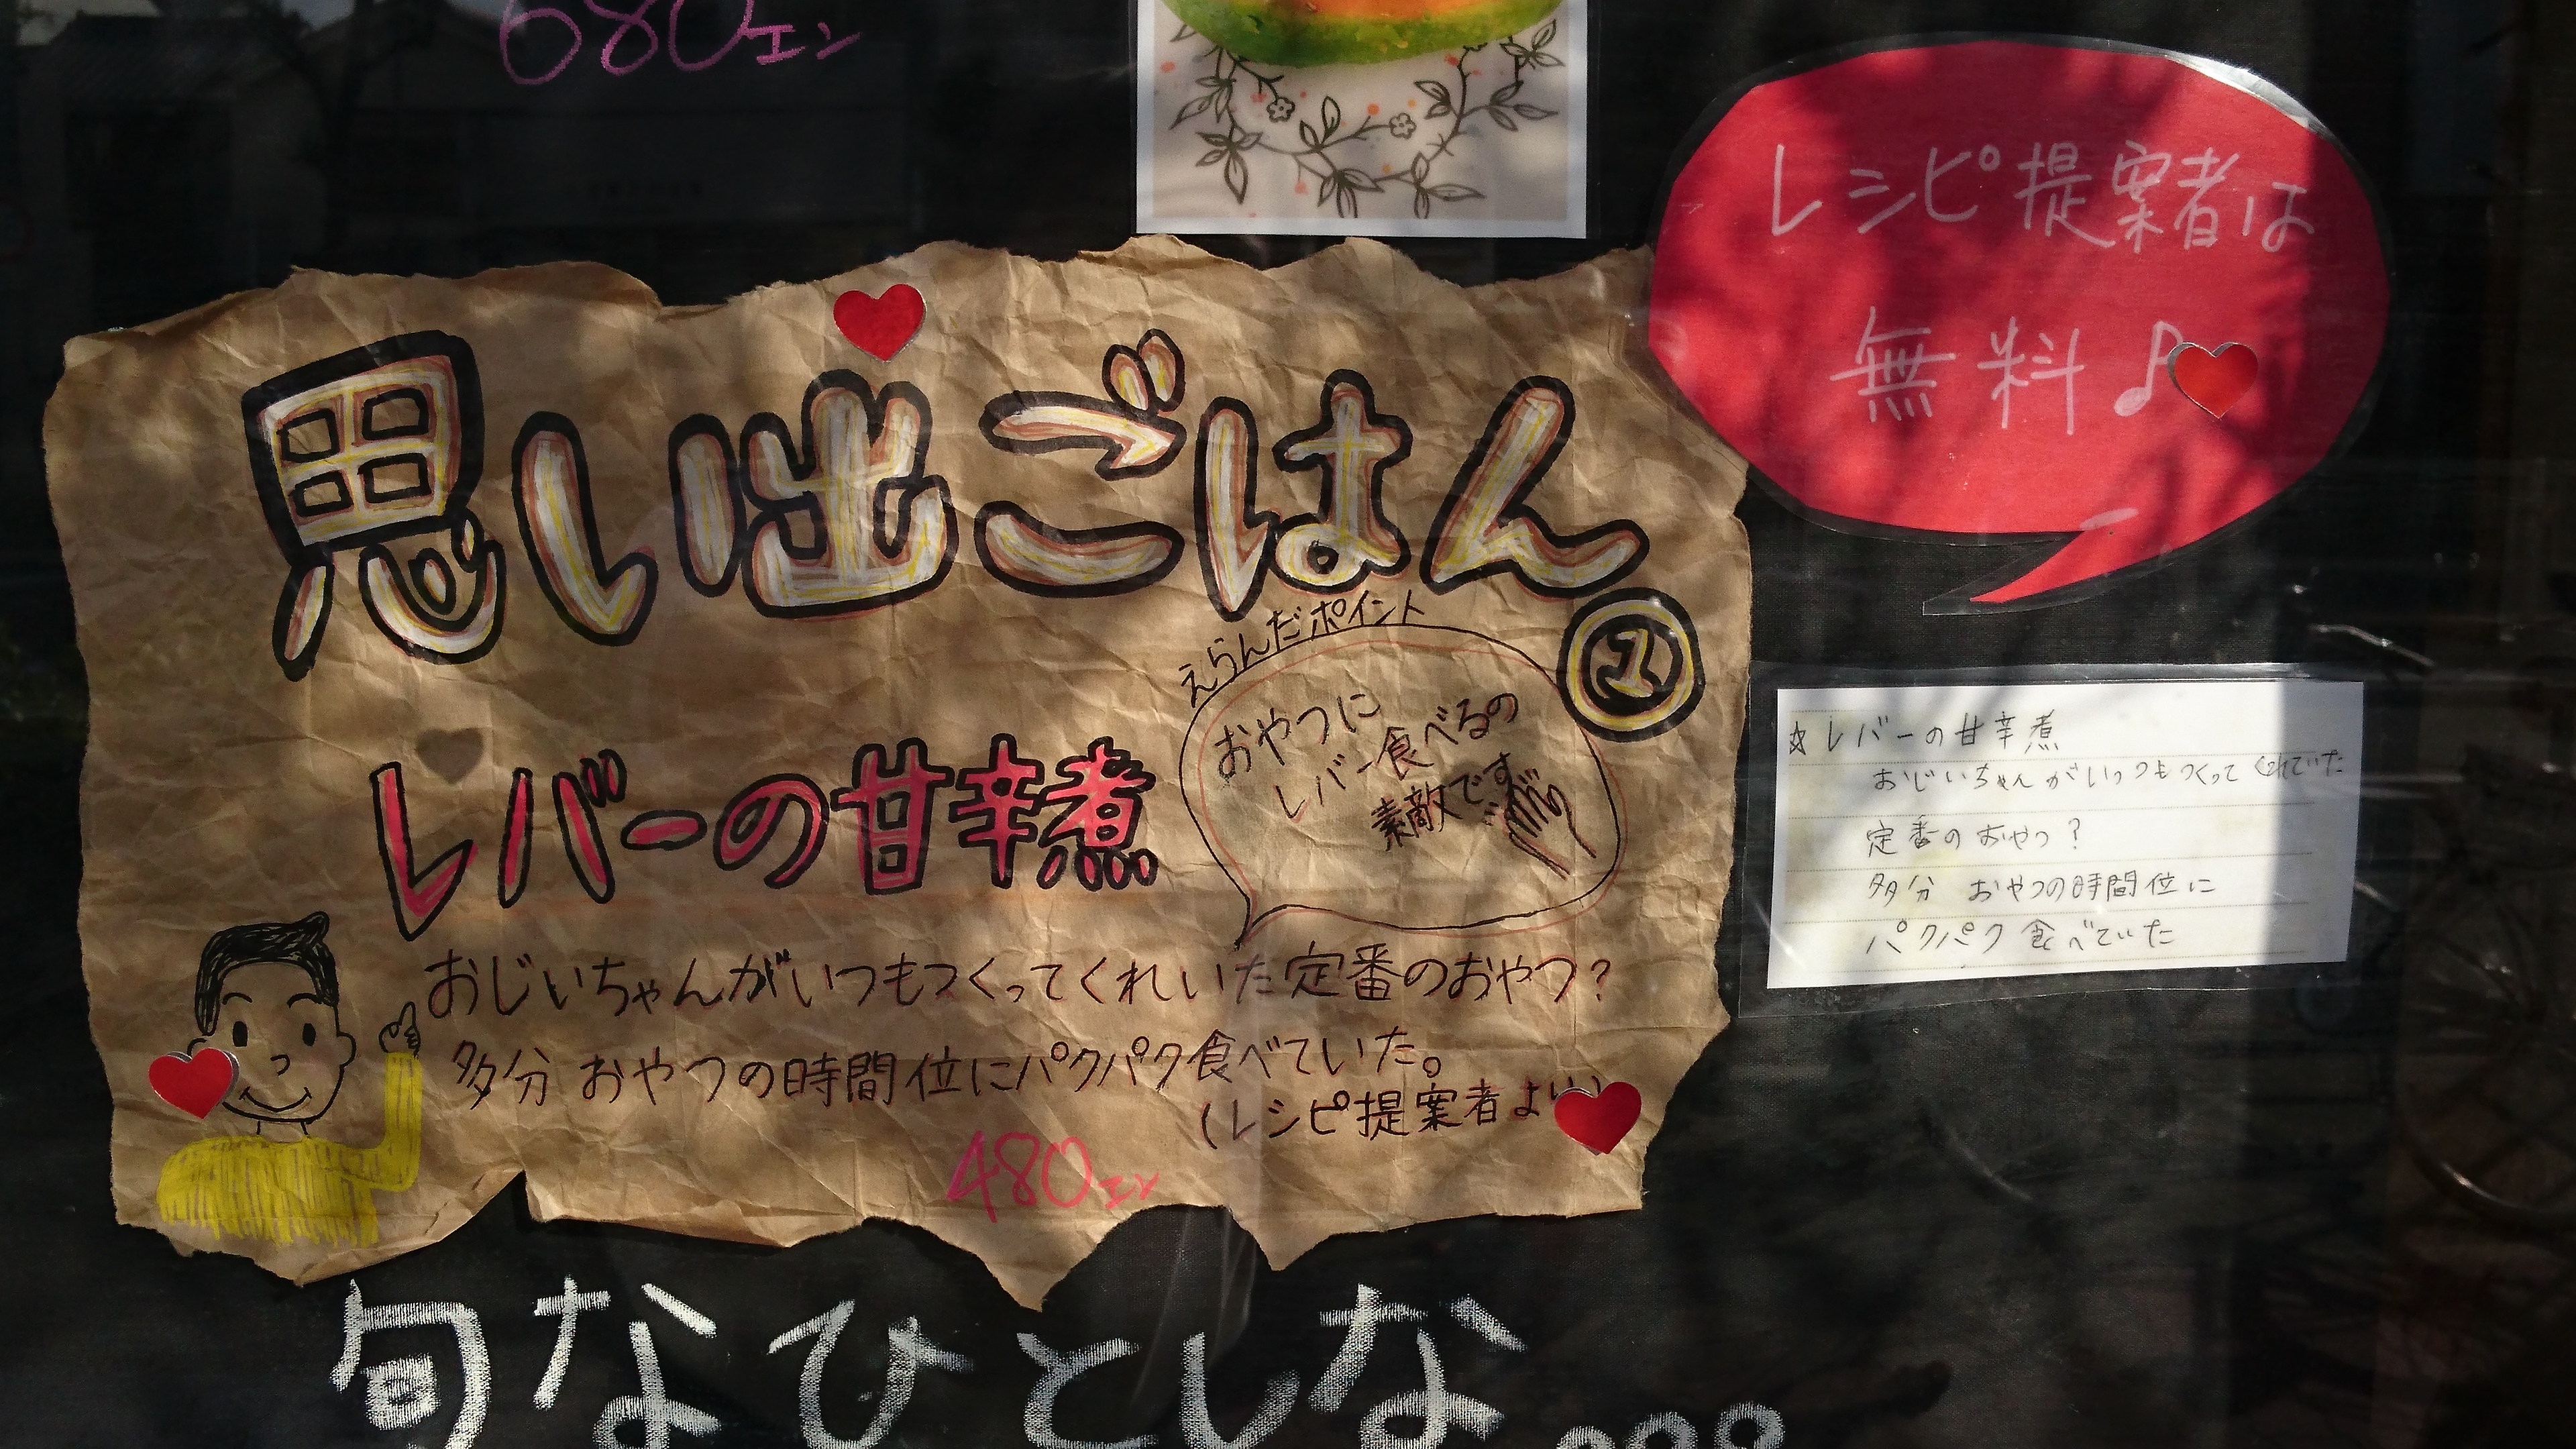 680エン
レシピ提案者は
無料♪
思い出ごはん
①
えらんだポイント
おやつに
レバー食べるの
素敵です
レバーの甘辛煮
おじいちゃんがいつもつくってくれいた定番のおやつ?
多分 おやつの時間位にパクパク食べていた。
(レシピ提案者より)
480エン
☆レバーの甘辛煮
おじいちゃんがいつもつくってくれていた
定番のおやつ?
多分 おやつの時間位に
パクパク食べていた
旬なひとしな